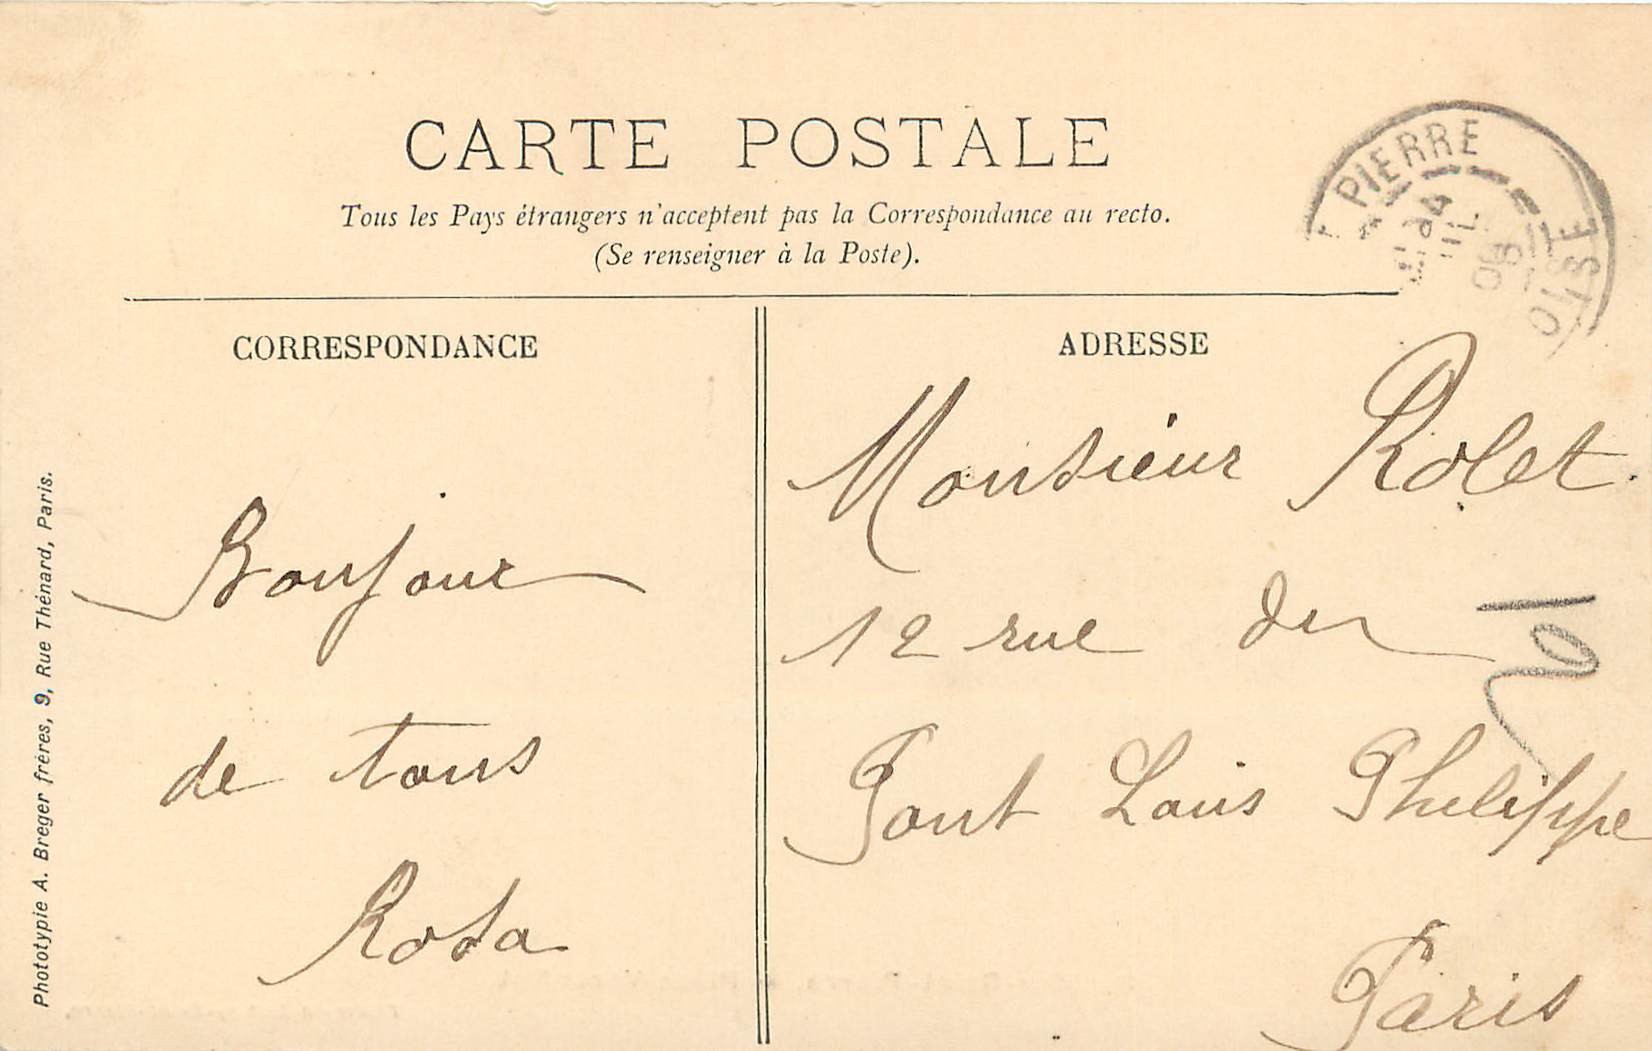 CARTE POSTALE
Tous les Pays étrangers n'acceptent pas la Correspondance au recto.
(Se renseigner à la Poste).
PIERRE
OISE
CORRESPONDANCE
Bonjour
de tous
Rosa
ADRESSE
Monsieur Rolet
12 rue du
Pont Louis Philippe
Paris
Phototypie A. Breger frères, 9, Rue Thénard, Paris.